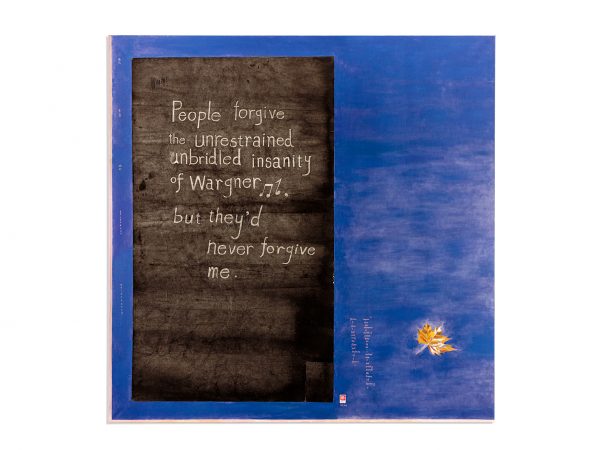 People forgive
the unrestrained
unbridled insanity
of Wargner ♫♪.
but they'd
never forgive
me.